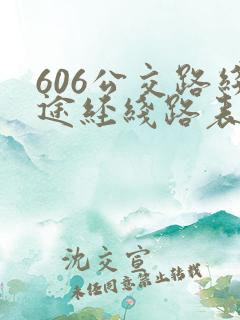 606公交路綫
途經綫路表
沈交宣
未经同意禁止转载